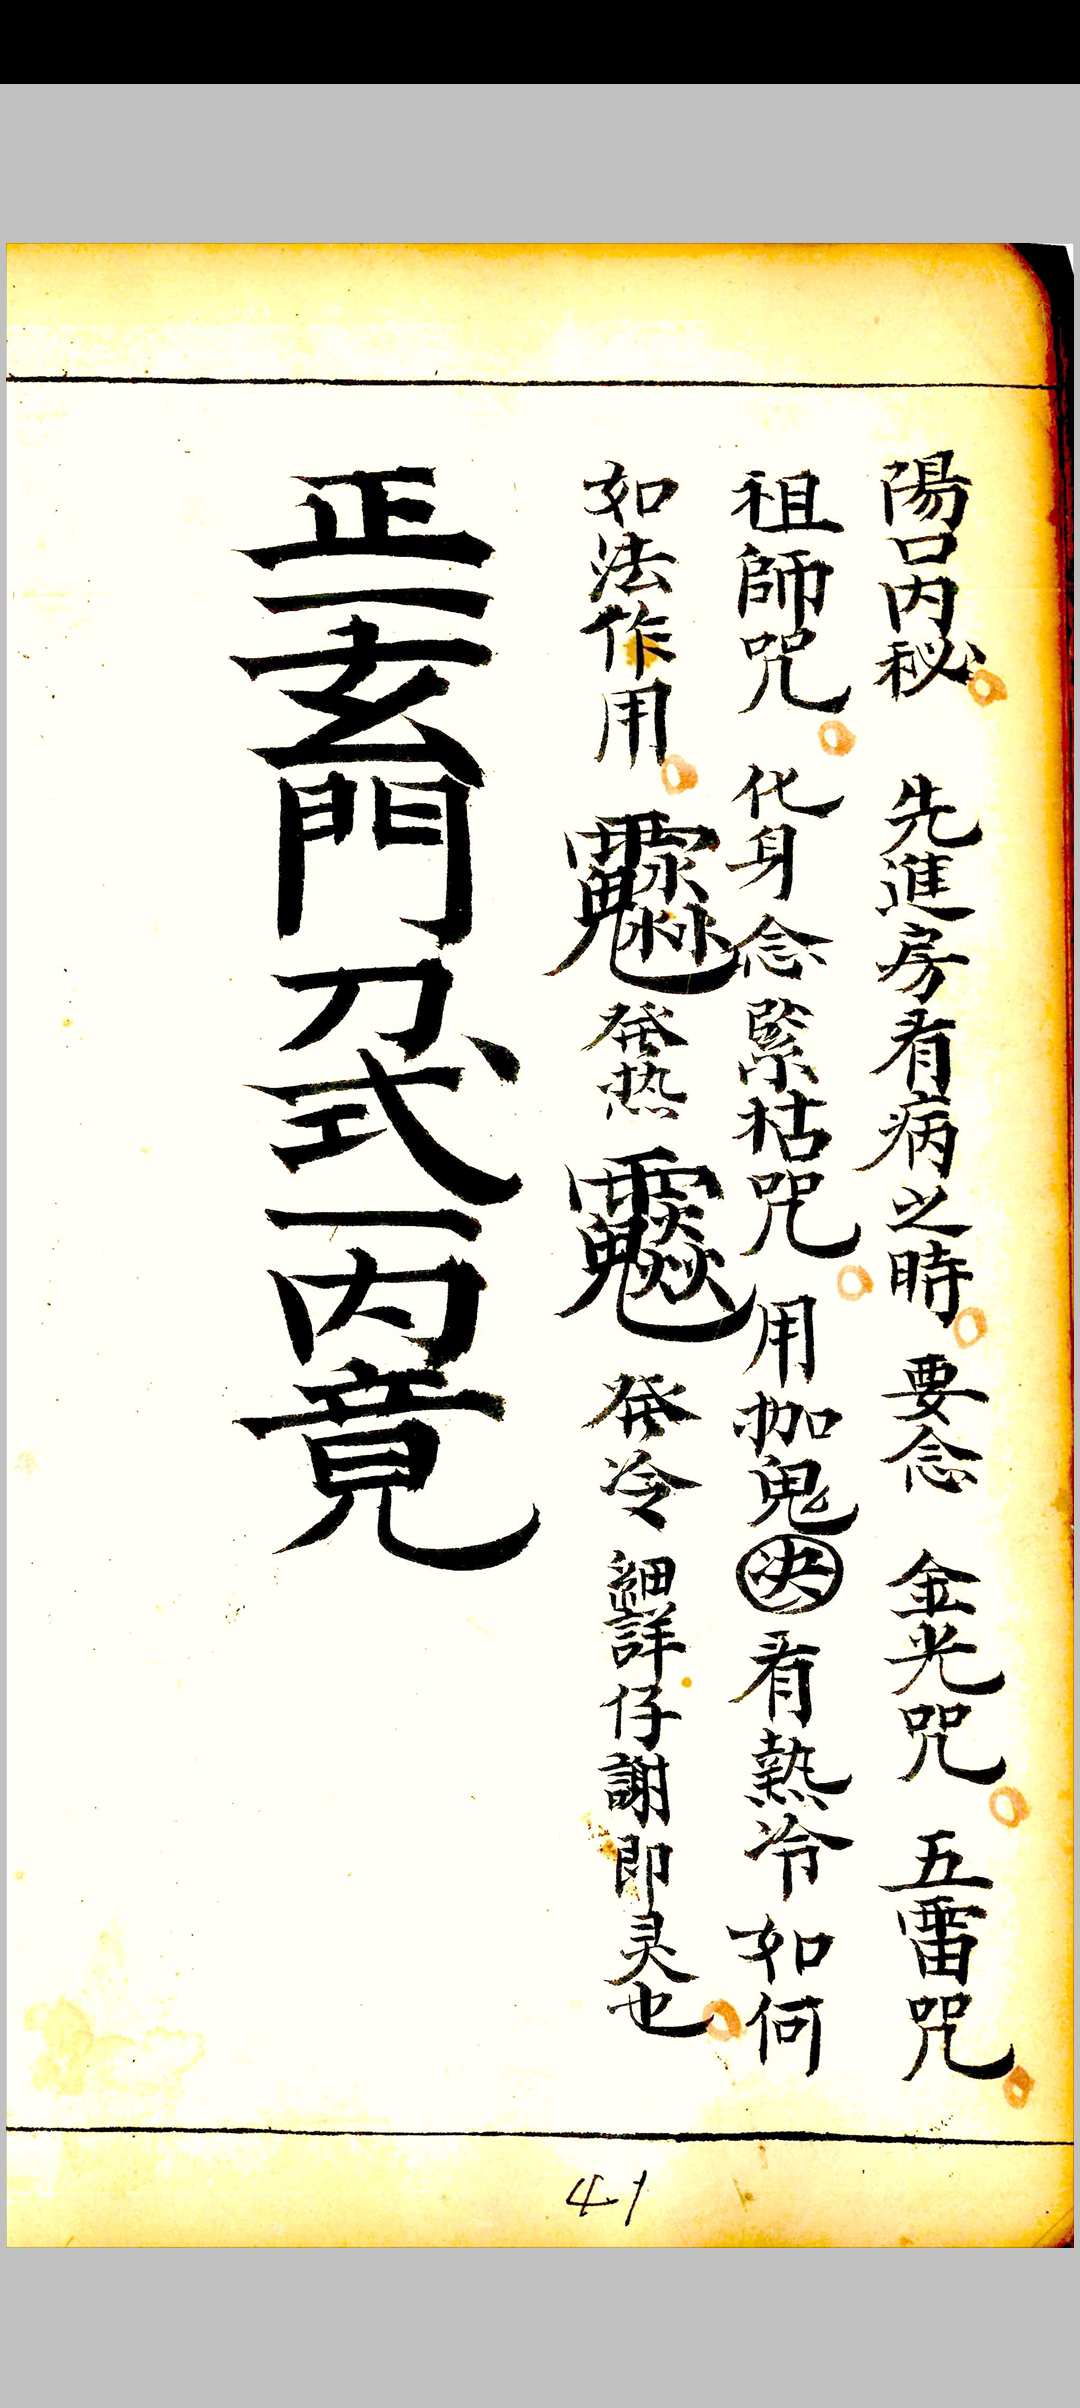 陽口內秘 先進房有病之時 要念 金光咒 五雷咒
祖師咒 化身念緊枯咒 用枷鬼決 有熱冷如何
如法作用 発热 発冷 細詳仔謝即灵也
正一玄門刀式一內竟
41